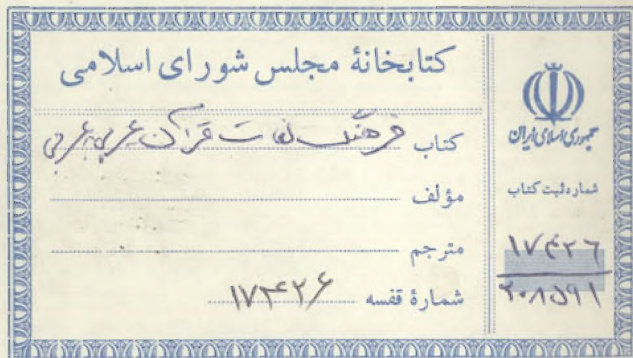 کتابخانهٔ مجلس شورای اسلامی
کتاب فرهنگ لغات قرآن عربی بعربی
مؤلف
مترجم
شمارهٔ قفسه ۱۷۴۲۶
جمهوری اسلامی ایران
شمارهٔ ثبت کتاب
۱۷۴۲۶
۲۰۸۵۹۱